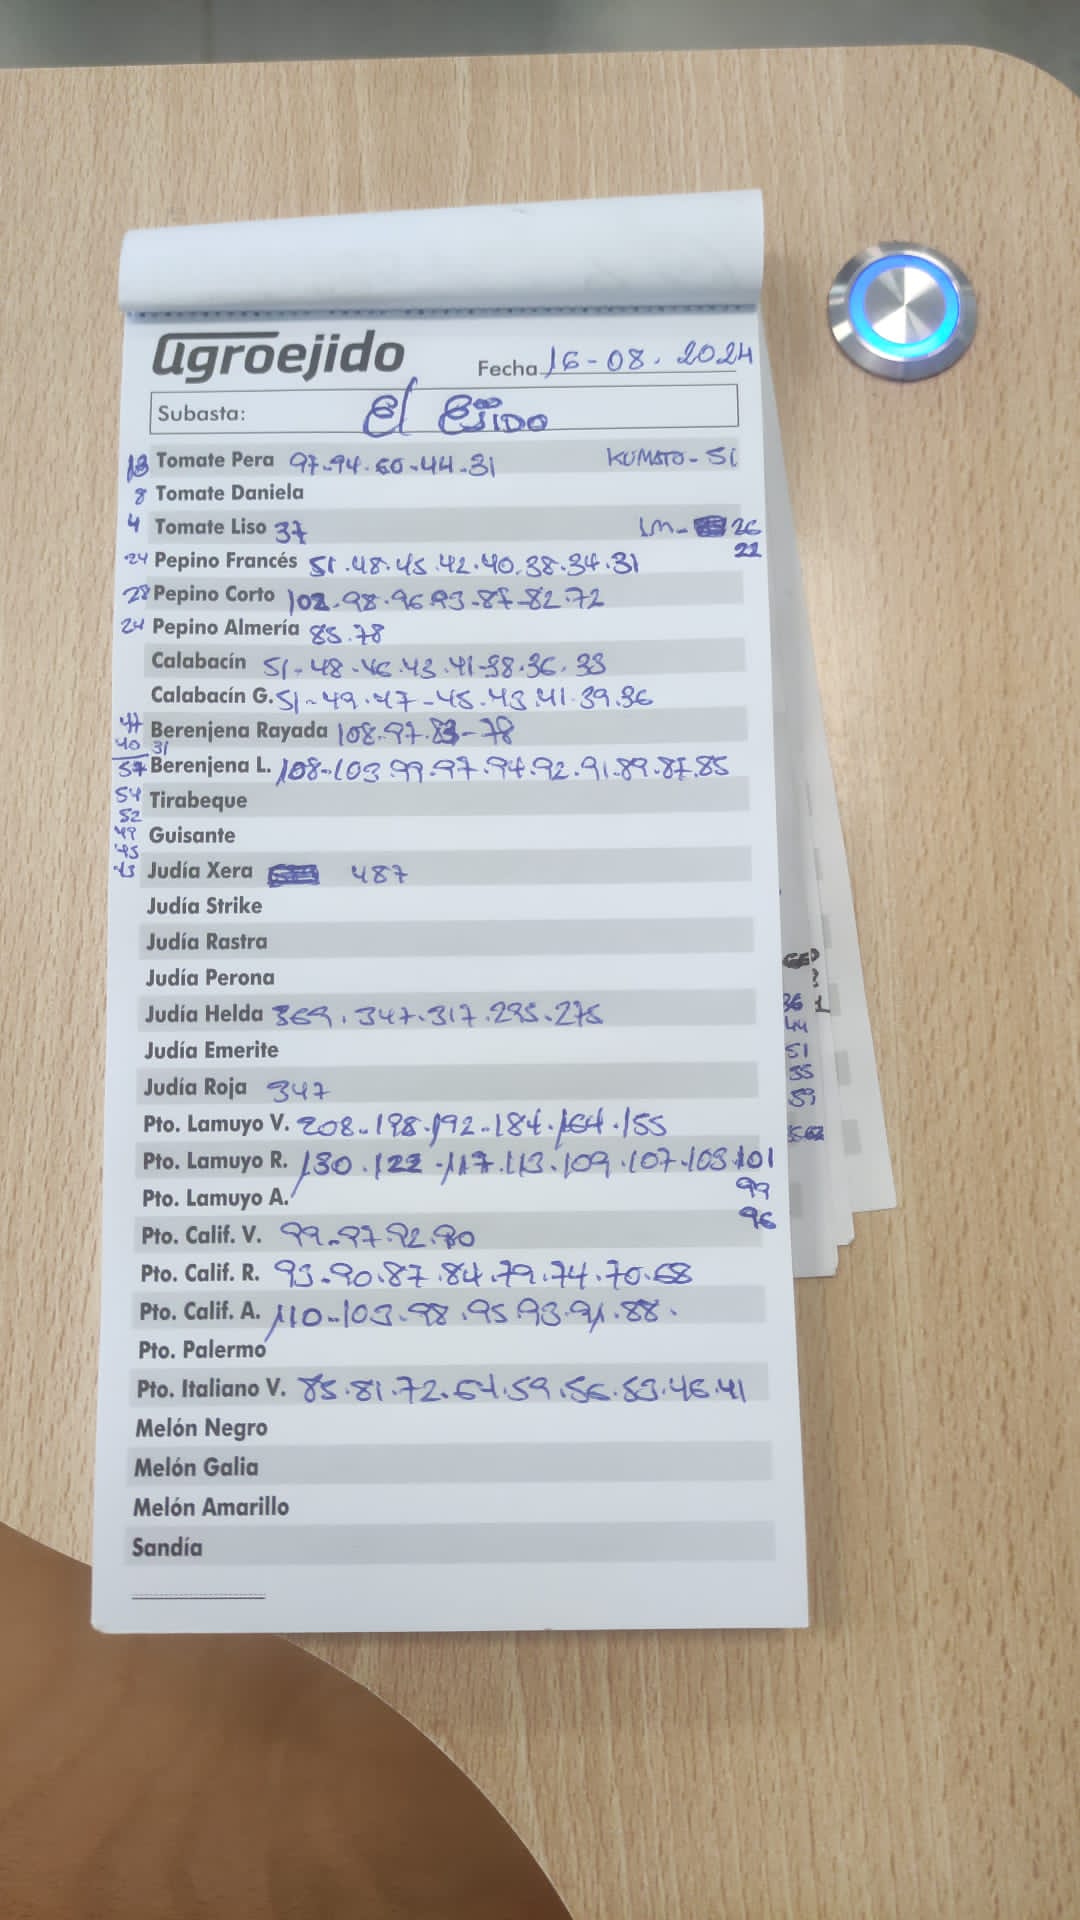 agroejido Fecha 16-08.2024
Subasta: El Ejido
13 Tomate Pera 97-94.60-44-31 KUMATO-51
8 Tomate Daniela
4 Tomate Liso 37 LM- 26
22
24 Pepino Francés 51.48.45.42.40.38.34.31
28 Pepino Corto 102-98-96.93-87-82-72
24 Pepino Almería 85.78
Calabacín 51-48-46.43.41-38.36.33
Calabacín G. 51-49.47-45.43.41.39.36
47 Berenjena Rayada 108-97.83-78
40 31
57 Berenjena L. 108-103.99.97.94.92.91.89.87.85
54 Tirabeque
52
49 Guisante
45
43 Judía Xera 487
Judía Strike
Judía Rastra
Judía Perona
Judía Helda 369.347.317.295.275
Judía Emerite
Judía Roja 347
Pto. Lamuyo V. 208-198.192-184.164.155
Pto. Lamuyo R. 130.122.117.113.109.107.103.101
Pto. Lamuyo A. 99
96
Pto. Calif. V. 99-97.92.90
Pto. Calif. R. 93-90.87.84.79.74.70.68
Pto. Calif. A. 110-103.98.95.93.91.88.
Pto. Palermo
Pto. Italiano V. 85.81.72.64.59.56.53.46.41
Melón Negro
Melón Galia
Melón Amarillo
Sandía
36
44
51
55
59